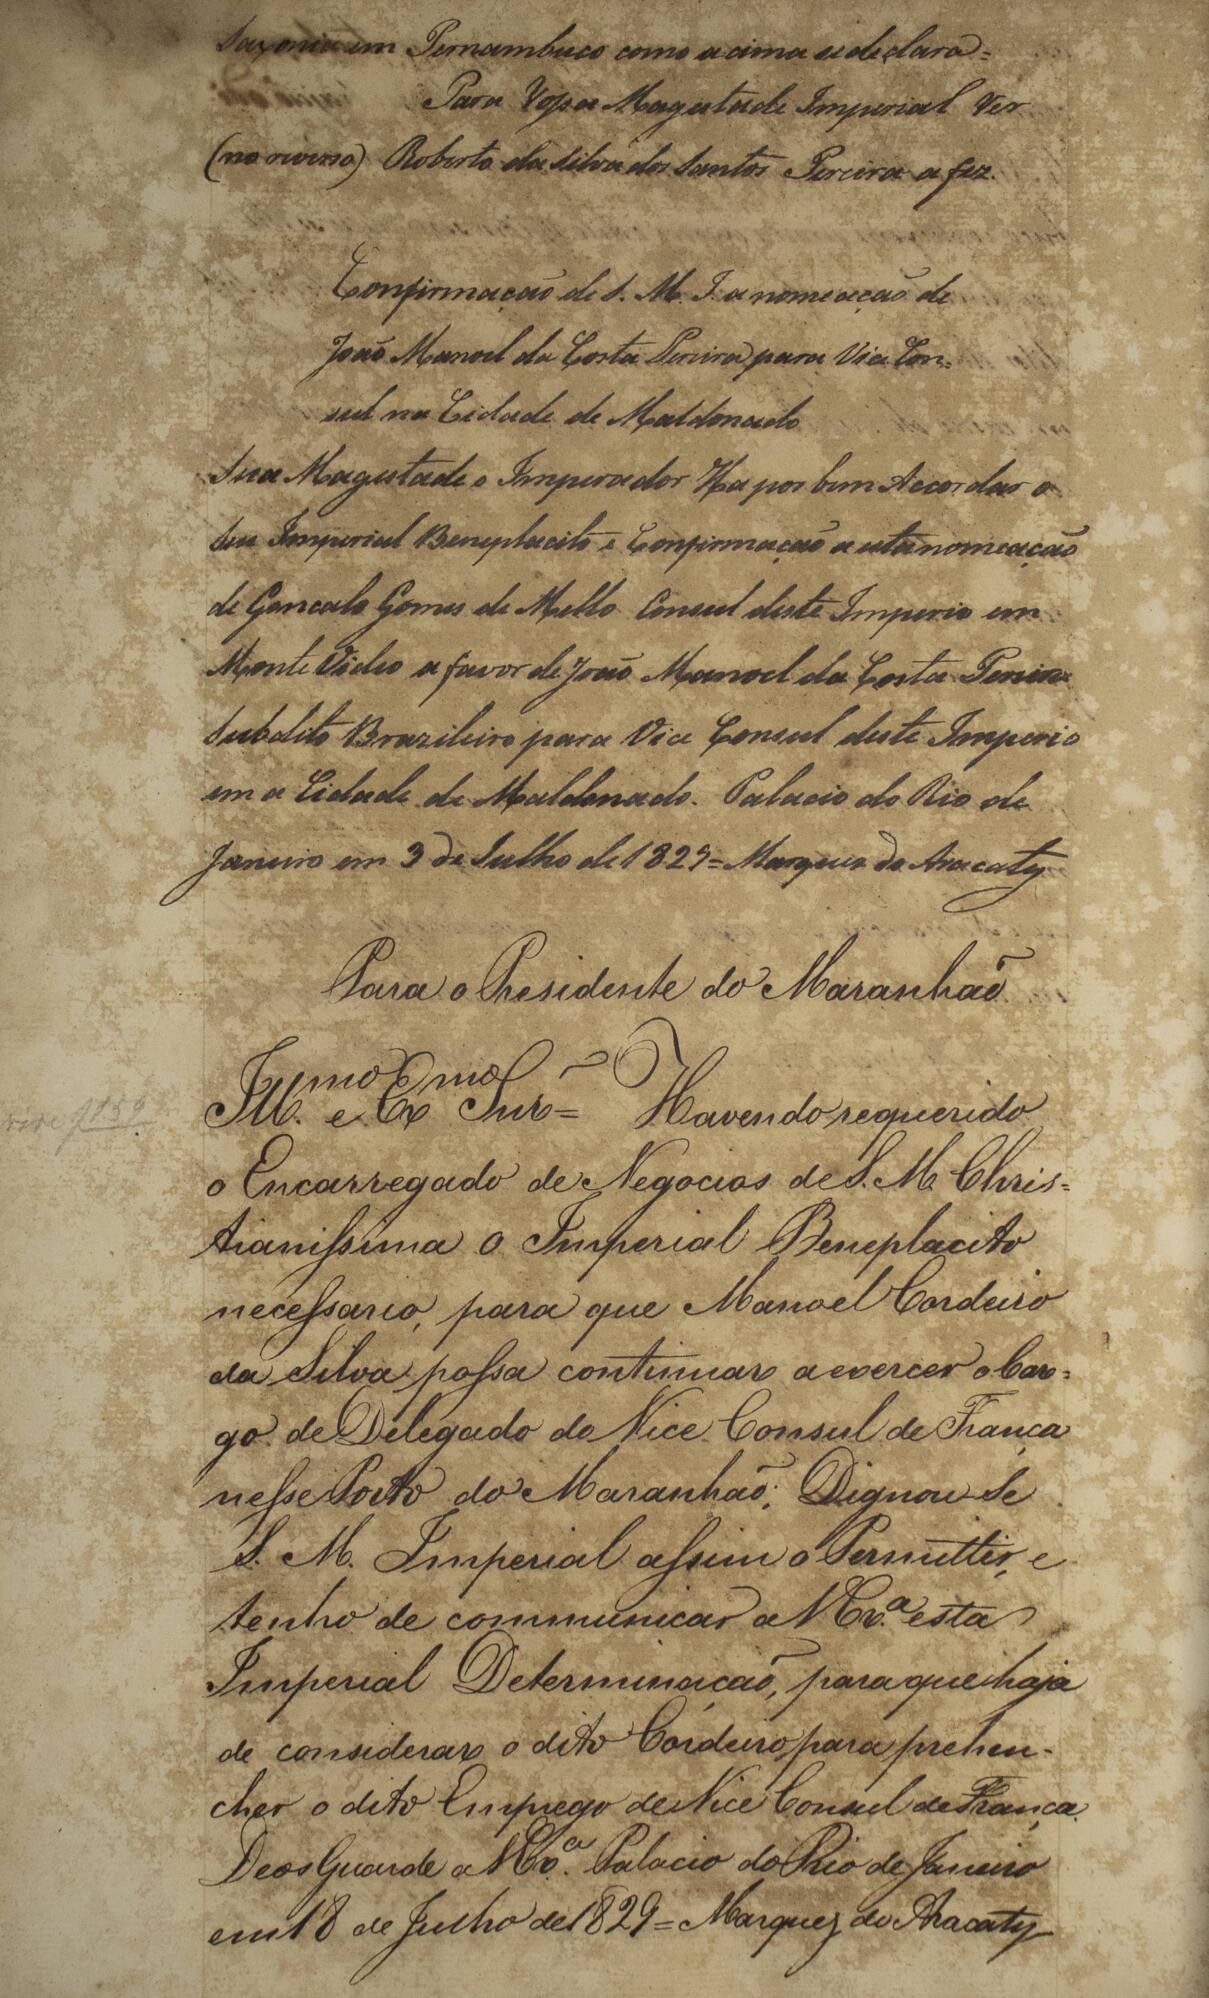 Saxonia em Pernambuco como acima se declara=
Para Vossa Magestade Imperial Ver
(no reverso) Roberto da Silva dos Santos Pereira a fez.
Confirmação de S. M. I. a nomeação de
João Manoel da Costa Pereira para Vice Con=
sul na Cidade de Maldonado
Sua Magestade o Imperador Ha por bem Accordar o
Seu Imperial Beneplacito e Confirmação a esta nomeação
de Gonçalo Gomes de Mello Consul deste Imperio em
Monte Video a favor de João Manoel da Costa Pereira
Subdito Brazileiro para Vice Consul deste Imperio
em a Cidade de Maldonado. Palacio do Rio de
Janeiro em 3 de Julho de 1829= Marquez do Aracaty
Para o Presidente do Maranhão
Ill.mo e Ex.mo Snr= Havendo requerido
o Encarregado de Negocios de S. M. Chris=
tianissima o Imperial Beneplacito
necessario, para que Manoel Cordeiro
da Silva possa continuar a exercer o Car=
go de Delegado do Vice Consul de França
nesse Porto do Maranhão; Dignou-Se
S. M. Imperial assim o Permittir, e
tenho de communicar a V Ex.a esta
Imperial Determinação, para que haja
de considerar o dito Cordeiro para prehen-
cher o dito Emprego de Vice Consul de França.
Deos Guarde a V Ex.a Palacio do Rio de Janeiro
em 18 de Julho de 1829= Marquez do Aracaty